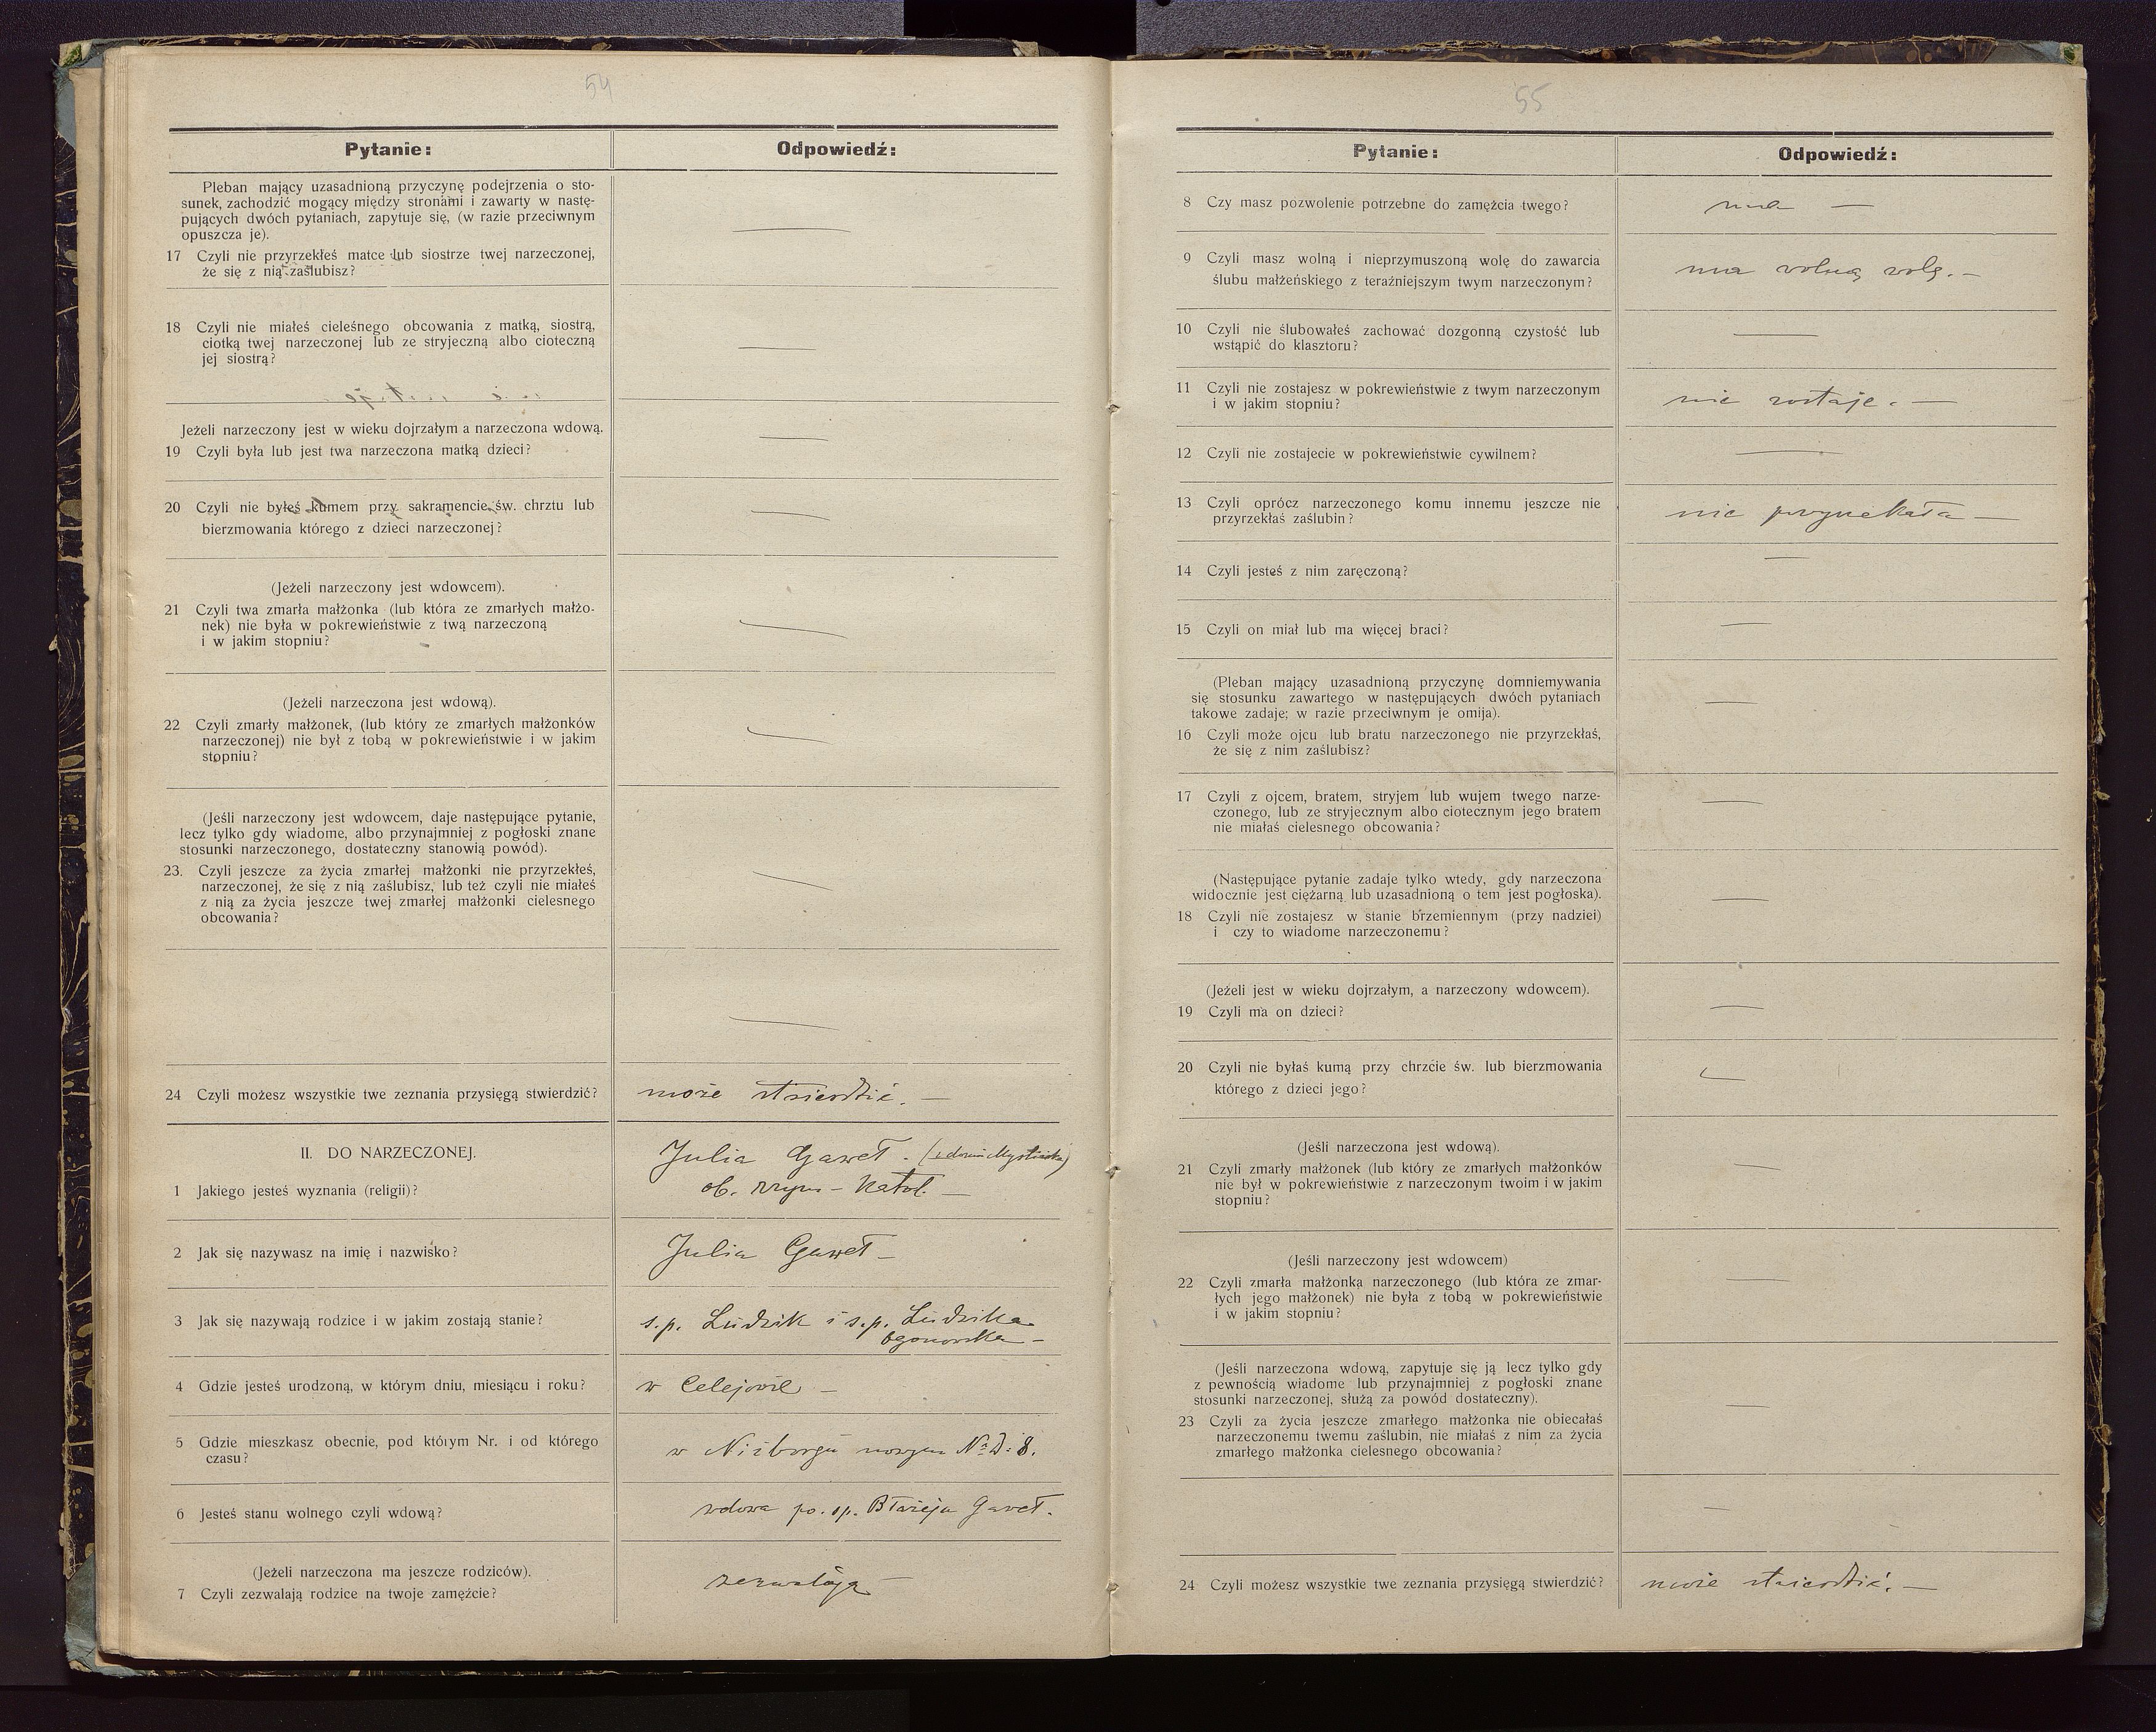 54
Pytanie:
Odpowiedź:
Pleban mający uzasadnioną przyczynę podejrzenia o sto-
sunek, zachodzić mogący między stronami i zawarty w nastę-
pujących dwóch pytaniach, zapytuje się, (w razie przeciwnym
opuszcza je).
17 Czyli nie przyrzekłeś matce lub siostrze twej narzeczonej,
że się z nią zaślubisz?
18 Czyli nie miałeś cieleśnego obcowania z matką, siostrą,
ciotką twej narzeczonej lub ze stryjeczną albo cioteczną
jej siostrą?
Jeżeli narzeczony jest w wieku dojrzałym a narzeczona wdową.
19 Czyli była lub jest twa narzeczona matką dzieci?
20 Czyli nie byłeś kumem przy sakramencie św. chrztu lub
bierzmowania którego z dzieci narzeczonej?
(Jeżeli narzeczony jest wdowcem).
21 Czyli twa zmarła małżonka (lub która ze zmarłych małżo-
nek) nie była w pokrewieństwie z twą narzeczoną
i w jakim stopniu?
(Jeżeli narzeczona jest wdową).
22 Czyli zmarły małżonek, (lub który ze zmarłych małżonków
narzeczonej) nie był z tobą w pokrewieństwie i w jakim
stopniu?
(Jeśli narzeczony jest wdowcem, daje następujące pytanie,
lecz tylko gdy wiadome, albo przynajmniej z pogłoski znane
stosunki narzeczonego, dostateczny stanowią powód).
23. Czyli jeszcze za życia zmarłej małżonki nie przyrzekłeś,
narzeczonej, że się z nią zaślubisz, lub też czyli nie miałeś
z nią za życia jeszcze twej zmarłej małżonki cielesnego
obcowania?
24 Czyli możesz wszystkie twe zeznania przysięgą stwierdzić?
może stwierdzić. —
II. DO NARZECZONEJ.
Julia Gaweł. (z domu
1 Jakiego jesteś wyznania (religii)?
ob. rzym - katol. —
2 Jak się nazywasz na imię i nazwisko?
Julia Gaweł —
3 Jak się nazywają rodzice i w jakim zostają stanie?
s.p. Ludwik i s.p. Ludwika
Ogonowska —
4 Gdzie jesteś urodzoną, w którym dniu, miesiącu i roku?
w Celejowie —
5 Gdzie mieszkasz obecnie, pod którym Nr. i od którego
czasu?
w Niżborgu nowym No D. 8.
6 Jesteś stanu wolnego czyli wdową?
wdowa po. sp. Błażeju Gaweł.
(Jeżeli narzeczona ma jeszcze rodziców).
7 Czyli zezwalają rodzice na twoje zamężcie?
zezwalają —
55
Pytanie:
Odpowiedź:
8 Czy masz pozwolenie potrzebne do zamężcia twego?
ma —
9 Czyli masz wolną i nieprzymuszoną wolę do zawarcia
ślubu małżeńskiego z teraźniejszym twym narzeczonym?
ma wolną wolę. —
10 Czyli nie ślubowałeś zachować dozgonną czystość lub
wstąpić do klasztoru?
11 Czyli nie zostajesz w pokrewieństwie z twym narzeczonym
i w jakim stopniu?
nie zostaje. —
12 Czyli nie zostajecie w pokrewieństwie cywilnem?
13 Czyli oprócz narzeczonego komu innemu jeszcze nie
przyrzekłaś zaślubin?
nie przyrzekała —
14 Czyli jesteś z nim zaręczoną?
15 Czyli on miał lub ma więcej braci?
(Pleban mający uzasadnioną przyczynę domniemywania
się stosunku zawartego w następujących dwóch pytaniach
takowe zadaje; w razie przeciwnym je omija).
16 Czyli może ojcu lub bratu narzeczonego nie przyrzekłaś,
że się z nim zaślubisz?
17 Czyli z ojcem, bratem, stryjem lub wujem twego narze-
czonego, lub ze stryjecznym albo ciotecznym jego bratem
nie miałaś cielesnego obcowania?
(Następujące pytanie zadaje tylko wtedy, gdy narzeczona
widocznie jest ciężarną lub uzasadnioną o tem jest pogłoska).
18 Czyli nie zostajesz w stanie brzemiennym (przy nadziei)
i czy to wiadome narzeczonemu?
(Jeżeli jest w wieku dojrzałym, a narzeczony wdowcem).
19 Czyli ma on dzieci?
20 Czyli nie byłaś kumą przy chrzcie św. lub bierzmowania
którego z dzieci jego?
(Jeśli narzeczona jest wdową).
21 Czyli zmarły małżonek (lub który ze zmarłych małżonków
nie był w pokrewieństwie z narzeczonym twoim i w jakim
stopniu?
(Jeśli narzeczony jest wdowcem)
22 Czyli zmarła małżonka narzeczonego (lub która ze zmar-
łych jego małżonek) nie była z tobą w pokrewieństwie
i w jakim stopniu?
(Jeśli narzeczona wdową, zapytuje się ją lecz tylko gdy
z pewnością wiadome lub przynajmniej z pogłoski znane
stosunki narzeczonej, służą za powód dostateczny).
23 Czyli za życia jeszcze zmarłego małżonka nie obiecałaś
narzeczonemu twemu zaślubin, nie miałaś z nim za życia
zmarłego małżonka cielesnego obcowania?
24 Czyli możesz wszystkie twe zeznania przysięgą stwierdzić?
może stwierdzić. —